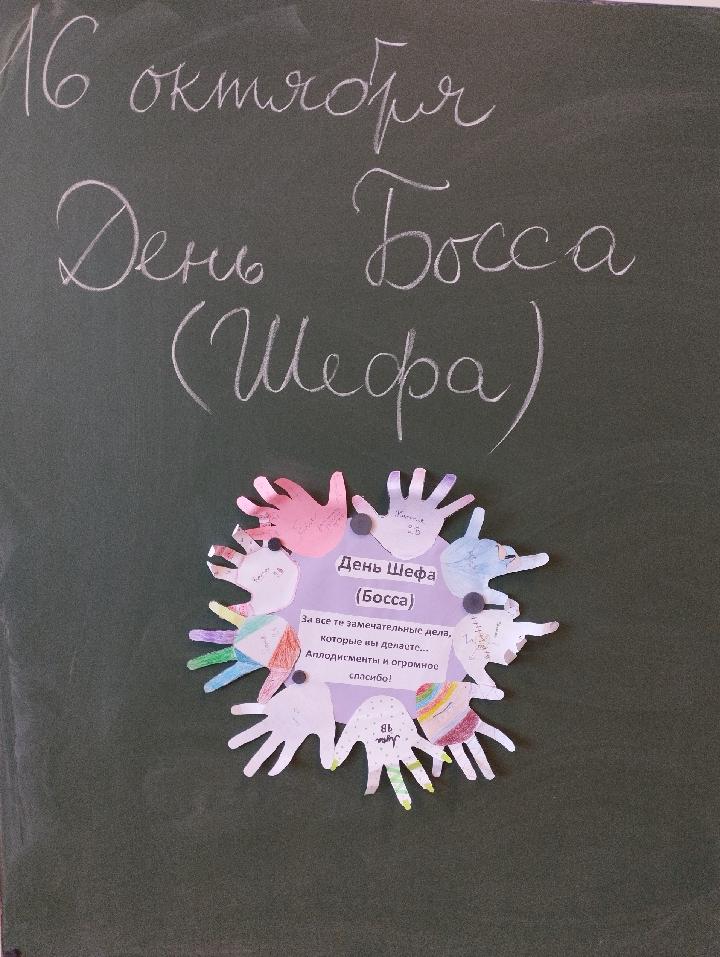 16 октября
День Босса
(Шефа)
День Шефа
(Босса)
За все те замечательные дела,
которые вы делаете...
Аплодисменты и огромное
спасибо!